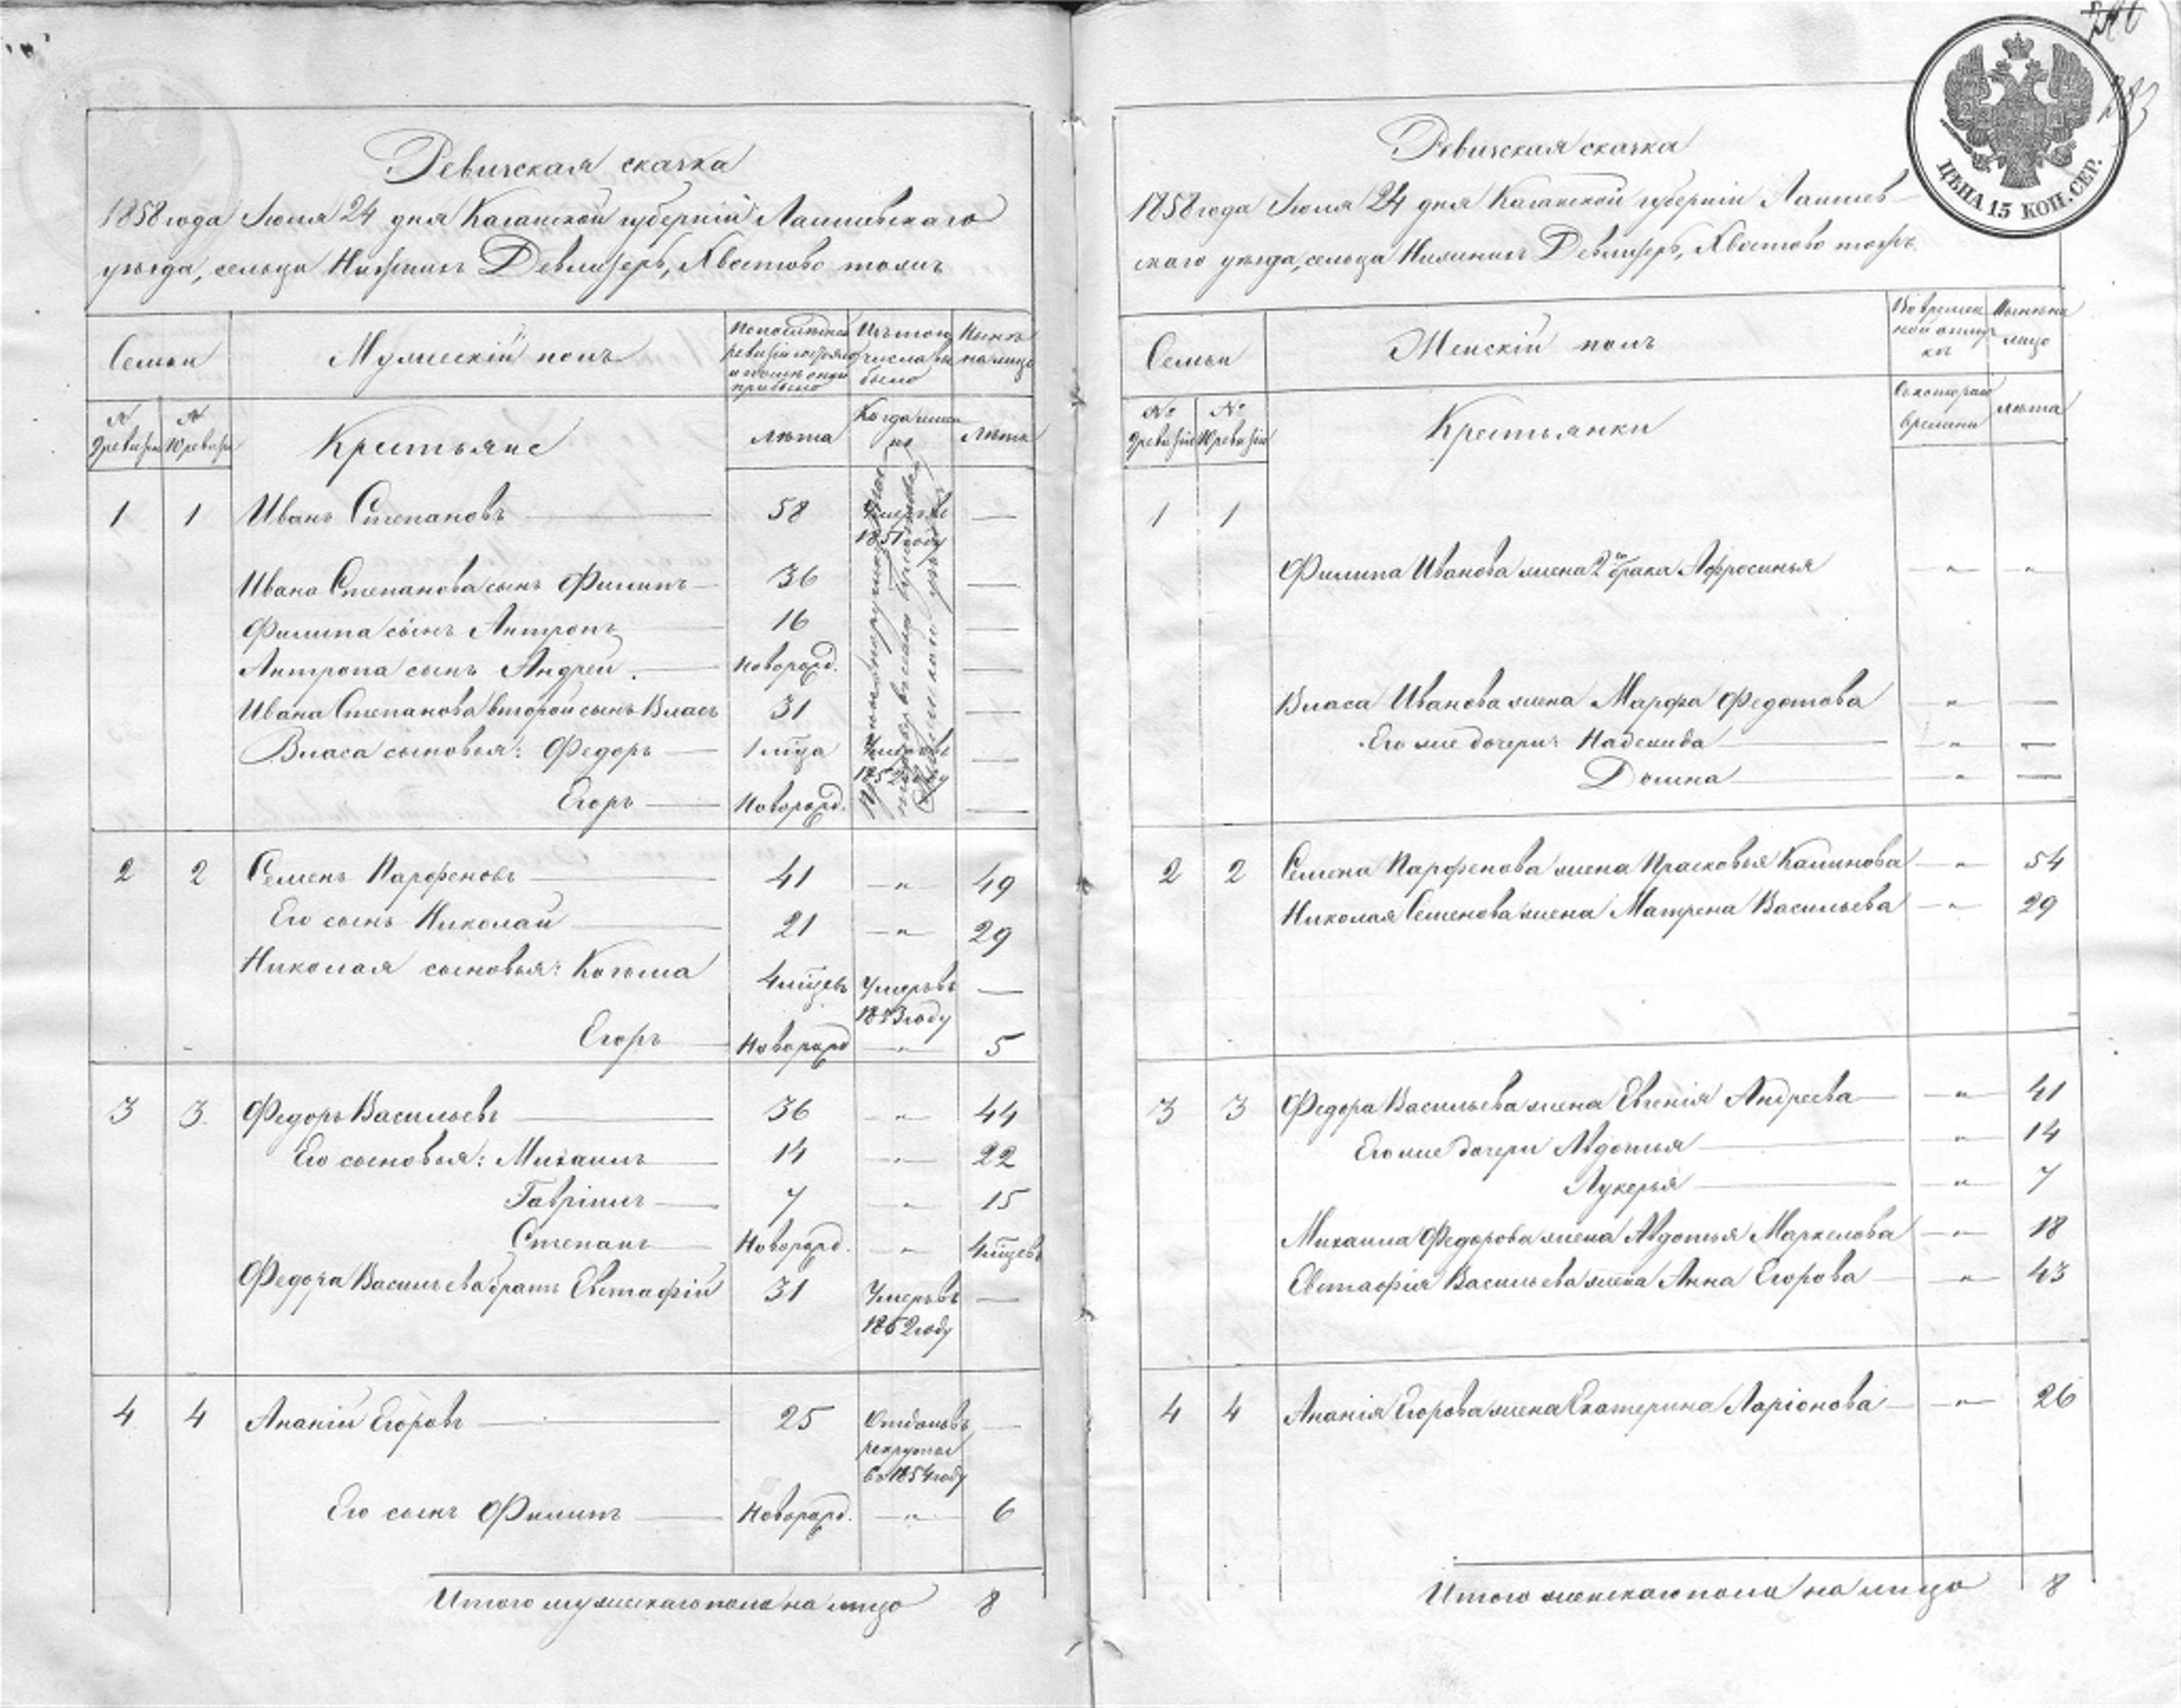 Ревичская сказка
1858 года Июля 24 дня Казанской губерніи Лаишевскаго
уѣзда, сельца Нижнихъ Девлизерь, Хвостово тожъ
Семьи
Мужескій полъ
По последней ревизіи состояло и после оной прибыло
Изъ того числа выбыло
Нынѣ на лицо
№ 9 ревизіи
№ 10 ревизіи
Крестьяне
лѣта
Когда именно
Лѣта
1 1 Иванъ Степановъ 58 Умеръ въ 1851 году —
Ивана Степанова сынъ Филипъ 36 —
Филипа сынъ Антропъ 16 —
Антропа сынъ Андрей. Новорозд. —
Ивана Степанова второй сынъ Власъ 31 —
Власа сыновья: Федоръ 1 мца Умеръ въ 1852 году —
Егоръ Новорозд. —
2 2 Семенъ Парфеновъ 41 — " — 49
Его сынъ Николай 21 — " — 29
Николая сыновья: Козьма 4 мцевъ Умеръ въ 1853 году —
Егоръ Новорозд — " — 5
3 3 Федоръ Васильевъ 36 — " — 44
Его сыновья: Михаилъ 14 — " — 22
Гавріилъ 7 — " — 15
Степанъ Новорозд. — " — 4 мцевъ
Федора Васильева братъ Евстафій 31 Умеръ въ 1852 году —
4 4 Ананій Егоровъ 25 Отданъ въ рекруты въ 1854 году —
Его сынъ Филипъ Новорозд. — " — 6
Итого мужескаго пола на лицо 8
283
ЦѢНА 15 КОП. СЕР.
Ревичская сказка
1858 года Июля 24 дня Казанской губерніи Лаишев-
скаго уѣзда, сельца Нижнихъ Девлизерь, Хвостово тожъ
Семьи
Женскій полъ
Во временной отлучкѣ
Нынѣ на лицо
№ 9 ревизіи
№ 10 ревизіи
Крестьянки
Съ котораго времени
лѣта
1 1
Филипа Иванова жена 2го брака Афросинья — " — — " —
Власа Иванова жена Марфа Федотова — " — —
Его же дочери: Надежда — " — —
Домна — " — —
2 2 Семена Парфенова жена Прасковья Калинова — " — 54
Николая Семенова жена Матрена Васильева — " — 29
3 3 Федора Васильева жена Евгенія Андреева — " — 41
Его же дочери Авдотья — " — 14
Лукерья — " — 7
Михаила Федорова жена Авдотья Маркелова — " — 18
Евстафія Васильева жена Анна Егорова — " — 43
4 4 Ананія Егорова жена Екатерина Ларіонова — " — 26
Итого женскаго пола на лицо 8